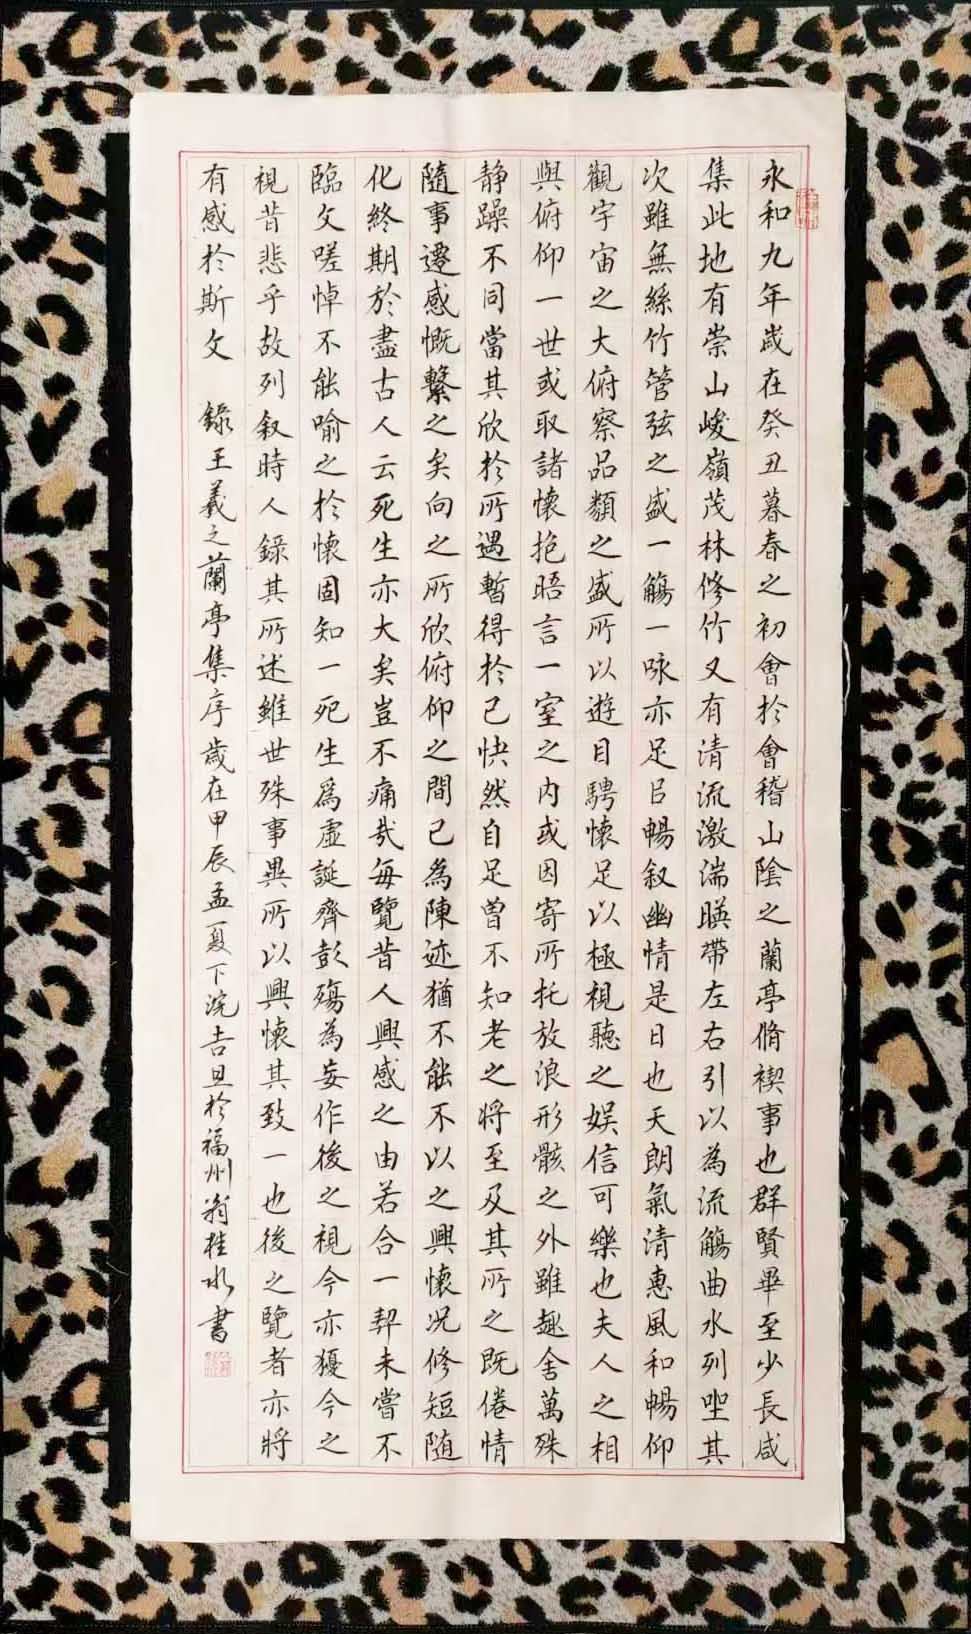 永和九年歲在癸丑暮春之初會於會稽山陰之蘭亭脩禊事也群賢畢至少長咸
集此地有崇山峻嶺茂林修竹又有清流激湍暎帶左右引以為流觴曲水列坐其
次雖無絲竹管弦之盛一觴一咏亦足㠯暢叙幽情是日也天朗氣清惠風和暢仰
觀宇宙之大俯察品類之盛所以遊目騁懷足以極視聽之娱信可樂也夫人之相
與俯仰一世或取諸懷抱晤言一室之内或因寄所托放浪形骸之外雖趣舍萬殊
静躁不同當其欣於所遇暫得於己快然自足曾不知老之將至及其所之既倦情
隨事遷感慨繫之矣向之所欣俯仰之間已為陳迹猶不能不以之興懷况修短随
化終期於盡古人云死生亦大矣豈不痛哉每覽昔人興感之由若合一契未嘗不
臨文嗟悼不能喻之於懷固知一死生為虚誕齊彭殤為妄作後之視今亦猶今之
視昔悲乎故列叙時人録其所述雖世殊事異所以興懷其致一也後之覽者亦將
有感於斯文 録王羲之蘭亭集序歲在甲辰孟夏下浣吉旦於福州翁桂水書